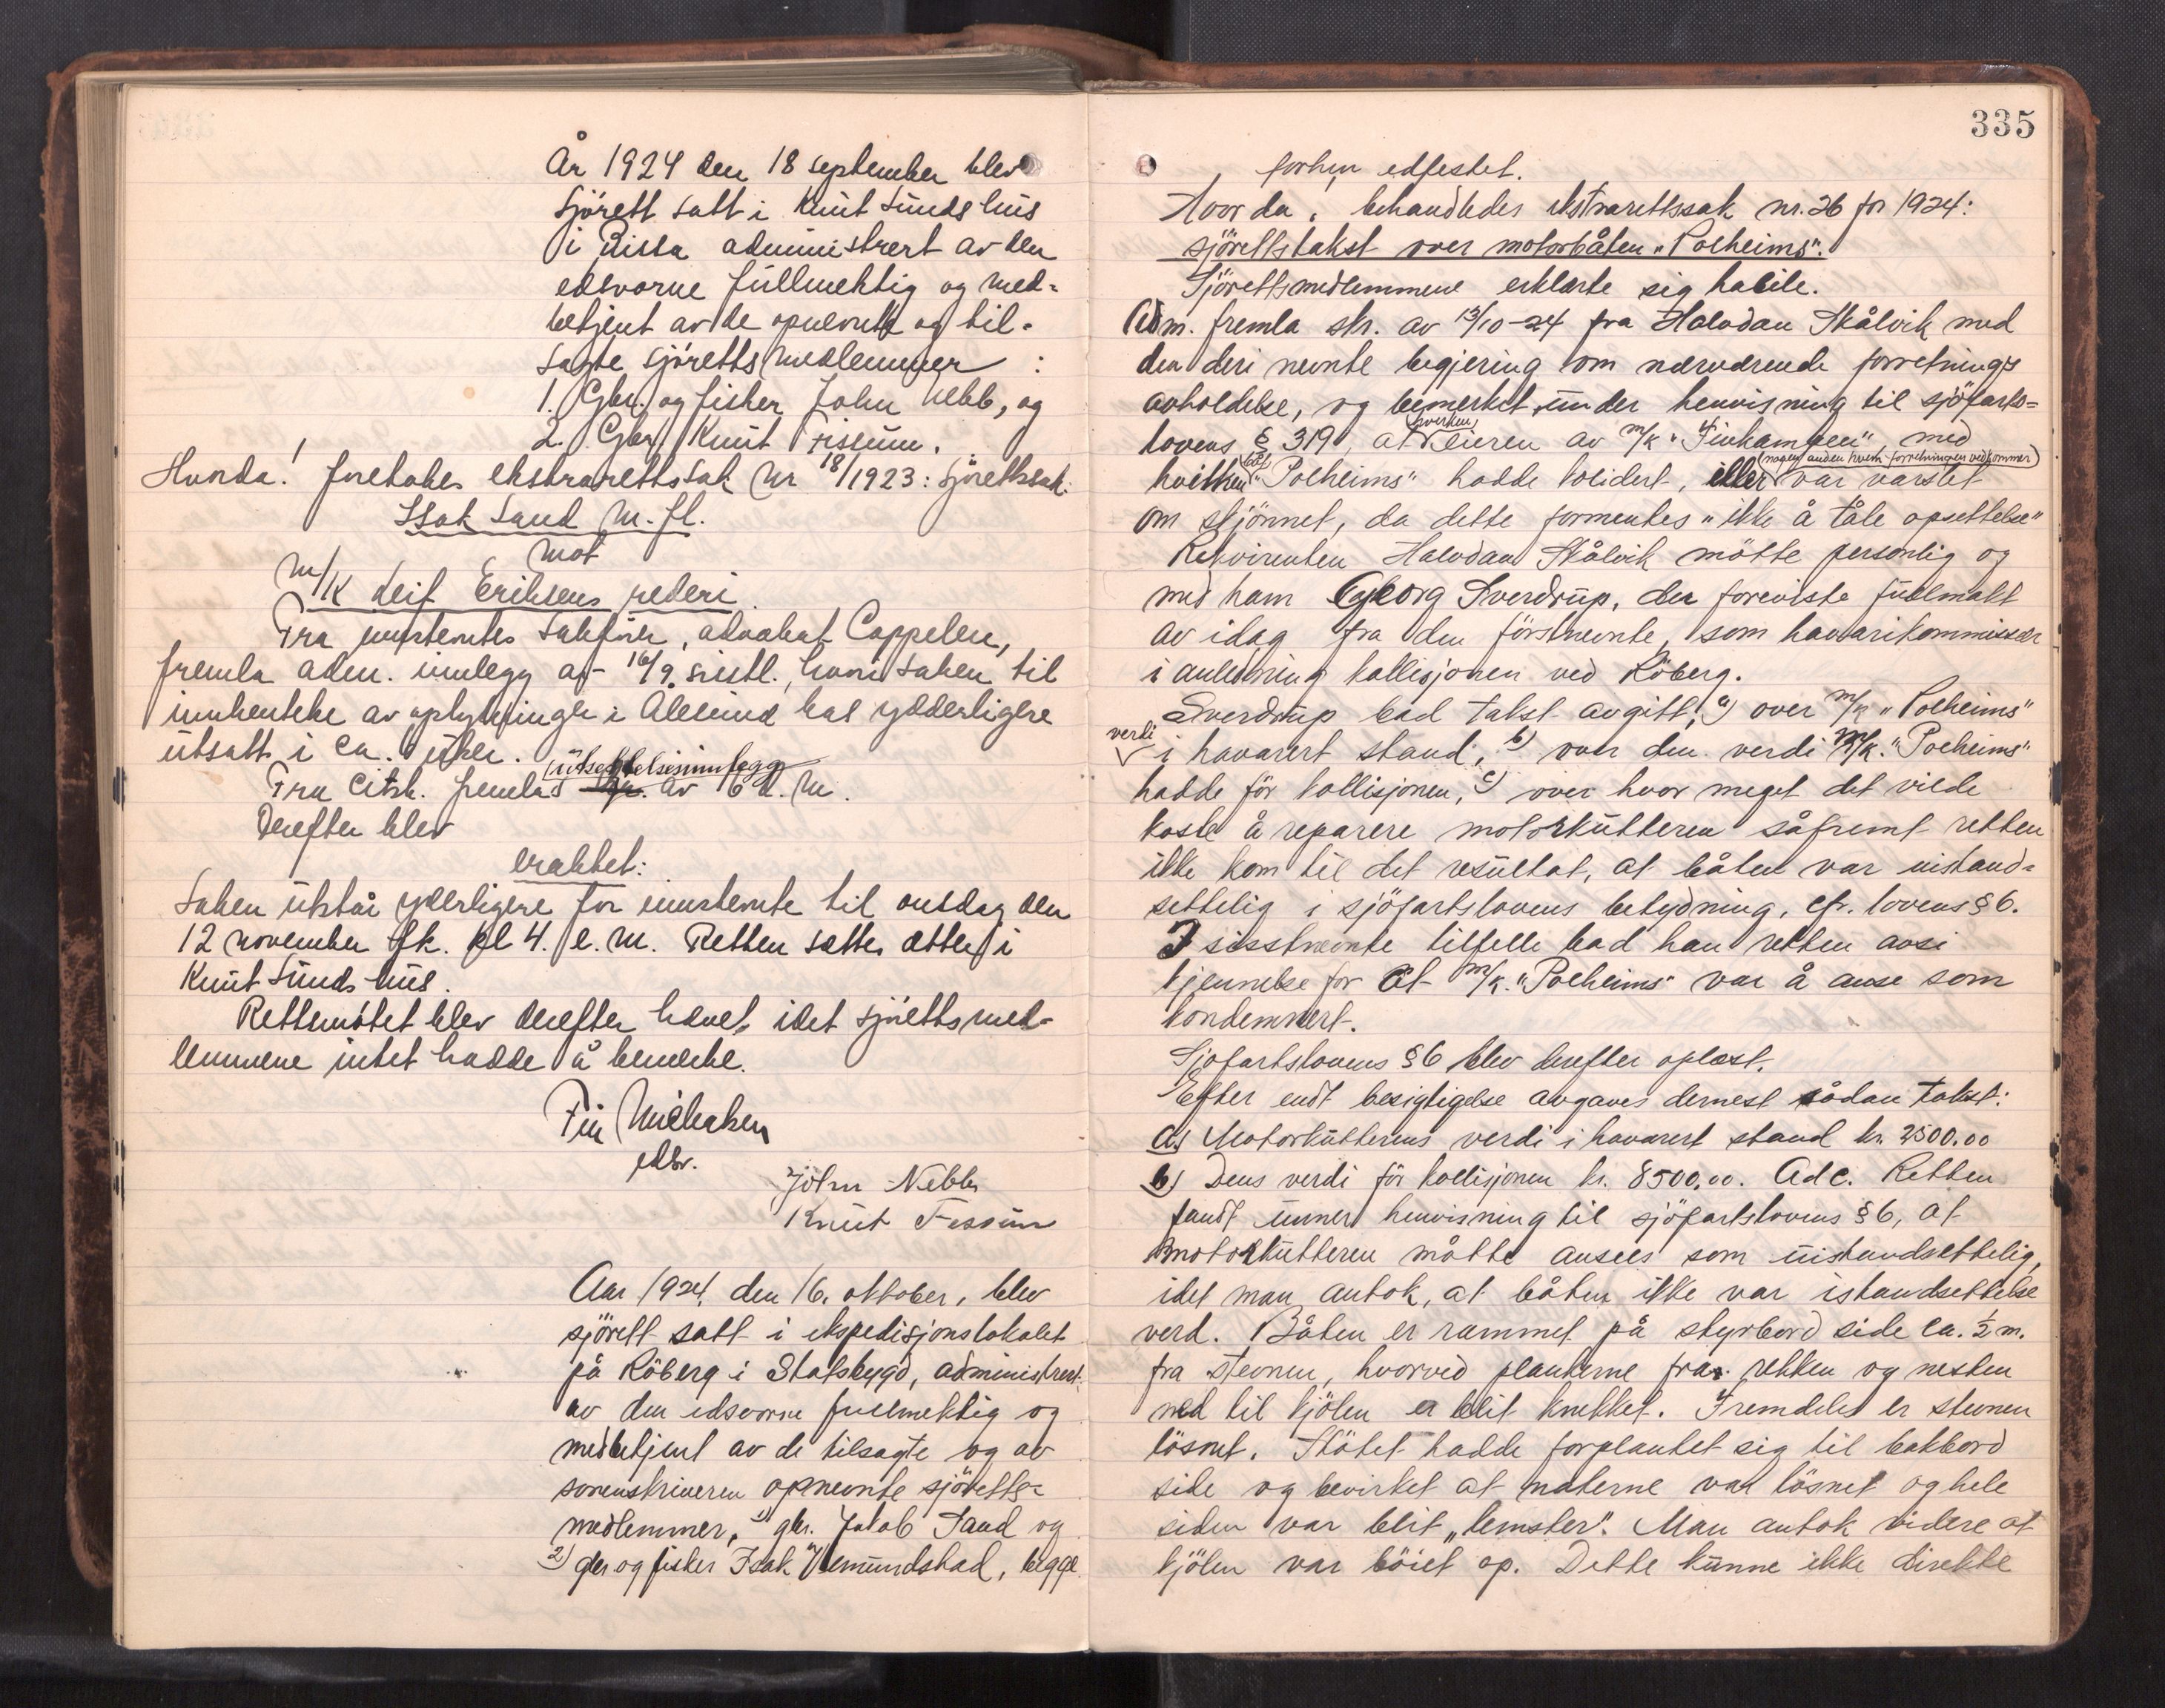 År 1924 den 18 september blev
sjörett satt i Knut Sunds hus
i Rissa administrert av den
edsvorne fullmektig og med-
betjent av de opnevnte og til-
sagte sjörettsmedlemmer :
1. Gbr. og fisker John Nebb, og
2. Gbr. Knut Fissum.
Hvorda! foretokes ekstrarettssak nr 18/1923: Sjörettssak:
Isak Sand m. fl.
mot
M/K Leif Eriksens rederi.
Fra innstevntes sakförer, advokat Cappelen,
fremla adm. innlegg av 16/9 sistl., hvori saken til
innhentelse av oplysninger i Ålesund bes ydderligere
utsatt i ca. uker.
utsettelsesinnlegg
Fra citsk. fremlas av 6 d. m.
Derefter blev
eraktet:
Saken utstår yderligere for innstevnte til onsdag den
12 november fk. kl 4. e. m. Retten settes atter i
Knut Sunds hus.
Rettsmötet blev derefter hevet, idet sjörettsmed-
lemmene intet hadde å bemerke.
Fin Michelsen
edsv.
John Nebb
Knut Fissum
Aar 1924, den 16. oktober, blev
sjörett satt i ekspedisjonslokalet
på Röberg i Statsbygd, administrert
av den edsvorne fullmektig og
medbetjent av de tilsagte og av
sorenskriveren opnevnte sjöretts-
medlemmer, 1) gbr. Jakob Sand og
2) gbr og fisker Isak Vemundstad, begge
335
forhen edfestet.
Hvorda, behandledes ekstrarettssak nr. 26 for 1924:
sjörettstakst over motorbåten "Solheims".
Sjörettsmedlemmene erklærte sig habile.
Adm. fremla skr. av 13/10-24 fra Halvdan Skålvik med
den deri nevnte begjering om nærværende forretnings
avholdelse, og bemerket under henvisning til sjöfarts-
hverken
lovens § 319, at eieren av m/k "Finkampen", med
nogen anden hvem forretningen vedkommer
hvilken "Solheims" hadde kolidert, eller var varslet
om skjönnet, da dette formentes "ikke å tåle opsettelse"
Rekvirenten Halvdan Skålvik mötte personlig og
med ham Georg Sverdrup, der foreviste fullmakt
av idag fra den förstnevnte, som havarikommissær
i anledning kollisjonen ved Röberg.
Sverdrup bad takst avgitt, a) over m/k "Solheims"
verdi
i havarert stand, b) over den verdi m/k. "Solheims"
hadde för kollisjonen, c) over hvor meget det vilde
koste å reparere motorkutteren såfremt retten
ikke kom til det resultat, at båten var uistand-
settelig i sjöfartslovens betydning, cfr. lovens § 6.
I sisstnevnte tilfelle bad han retten avsi
kjennelse for at m/k. "Solheims" var å anse som
kondemnert.
Sjofartslovens § 6 blev derefter oplæst.
Efter endt besigtigelse avgaves dernest sådan takst:
a) Motorkutterens verdi i havarert stand kr. 2500.00
b) Dens verdi för kollisjonen kr. 8500.00. Ad c. Retten
fandt unner henvisning til sjöfartslovens § 6, at
motorkutteren måtte ansees som uistandsettelig,
idet man antok, at båten ikke var istandsettelse
verd. Båten er rammet på styrbord side ca. ½ m.
fra stevnen, hvorved plankerne fra rekken og nesten
ned til kjölen er blit knekket. Fremdeles er stevnen
lösnet. Stötet hadde forplantet sig til bakbord
side og bevirket at naterne var lösnet og hele
siden var blit "lemster". Man antok videre at
kjölen var böiet op. Dette kunne ikke direkte